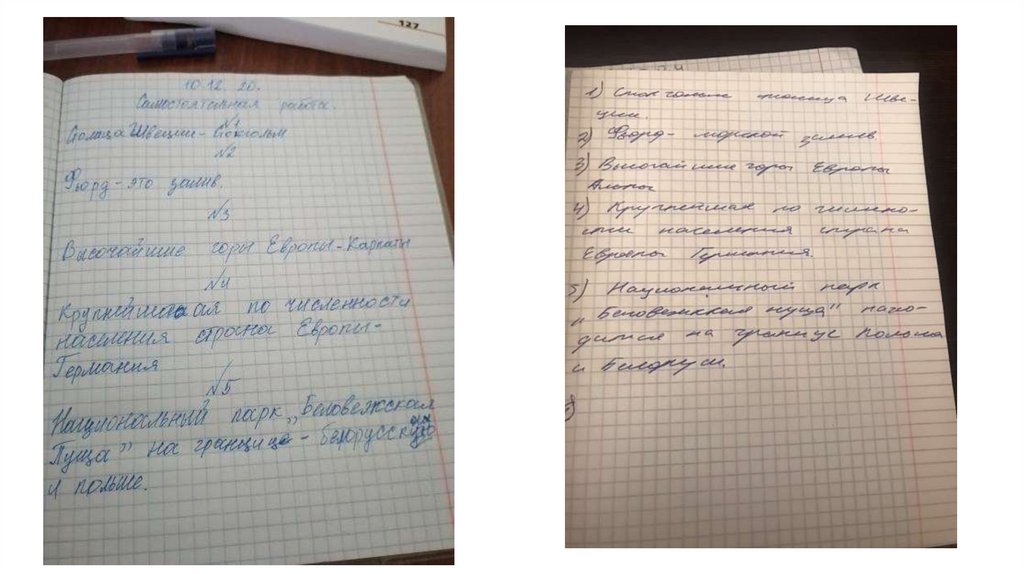 127
10.12. 20.
Самостоятельная работа.
№1
Столица Швеции - Стокгольм
№2
Фьорд - это залив.
№3
Высочайшие горы Европы - Карпаты
№4
Крупнейшая по численности
населения страна Европы -
Германия
№5
Национальный парк „Беловежская
Пуща" на границе -
и польше.
1) Стокгольм столица Шве-
ции.
2) Фьорд - морской залив
3) Высочайшие горы Европы
Альпы
4) Крупнейшая по числено-
сти населения страна
Европы Германия.
5) Национальный парк
„Беловежская пуща" нахо-
дится на границе
и